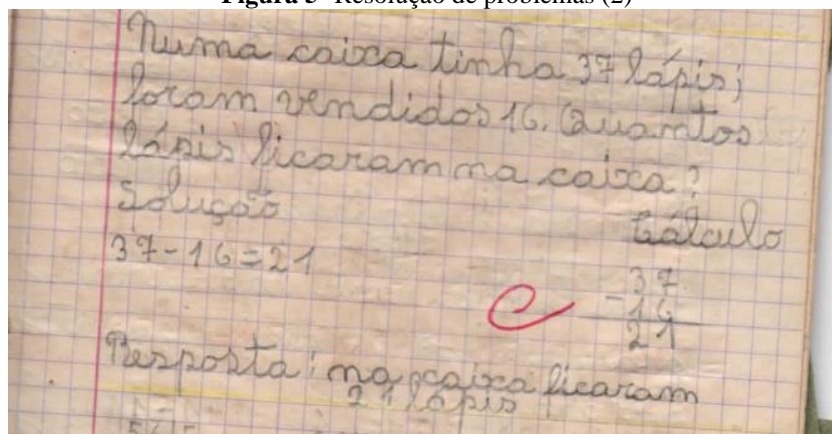 Figura 3- Resolução de problemas (2)
Numa caixa tinha 37 lápis;
foram vendidos 16. Quantos
lápis ficaram na caixa?
Solução
Cálculo
37-16=21
37
-16
21
C
Resposta: na caixa ficaram
21 lápis